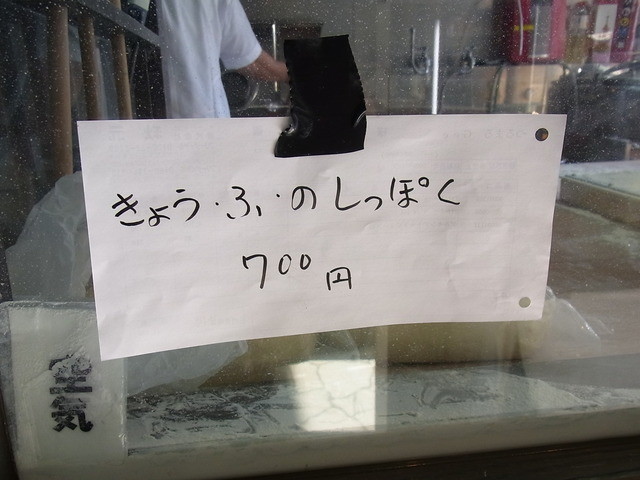 きょう・ふ・のしっぽく
700円